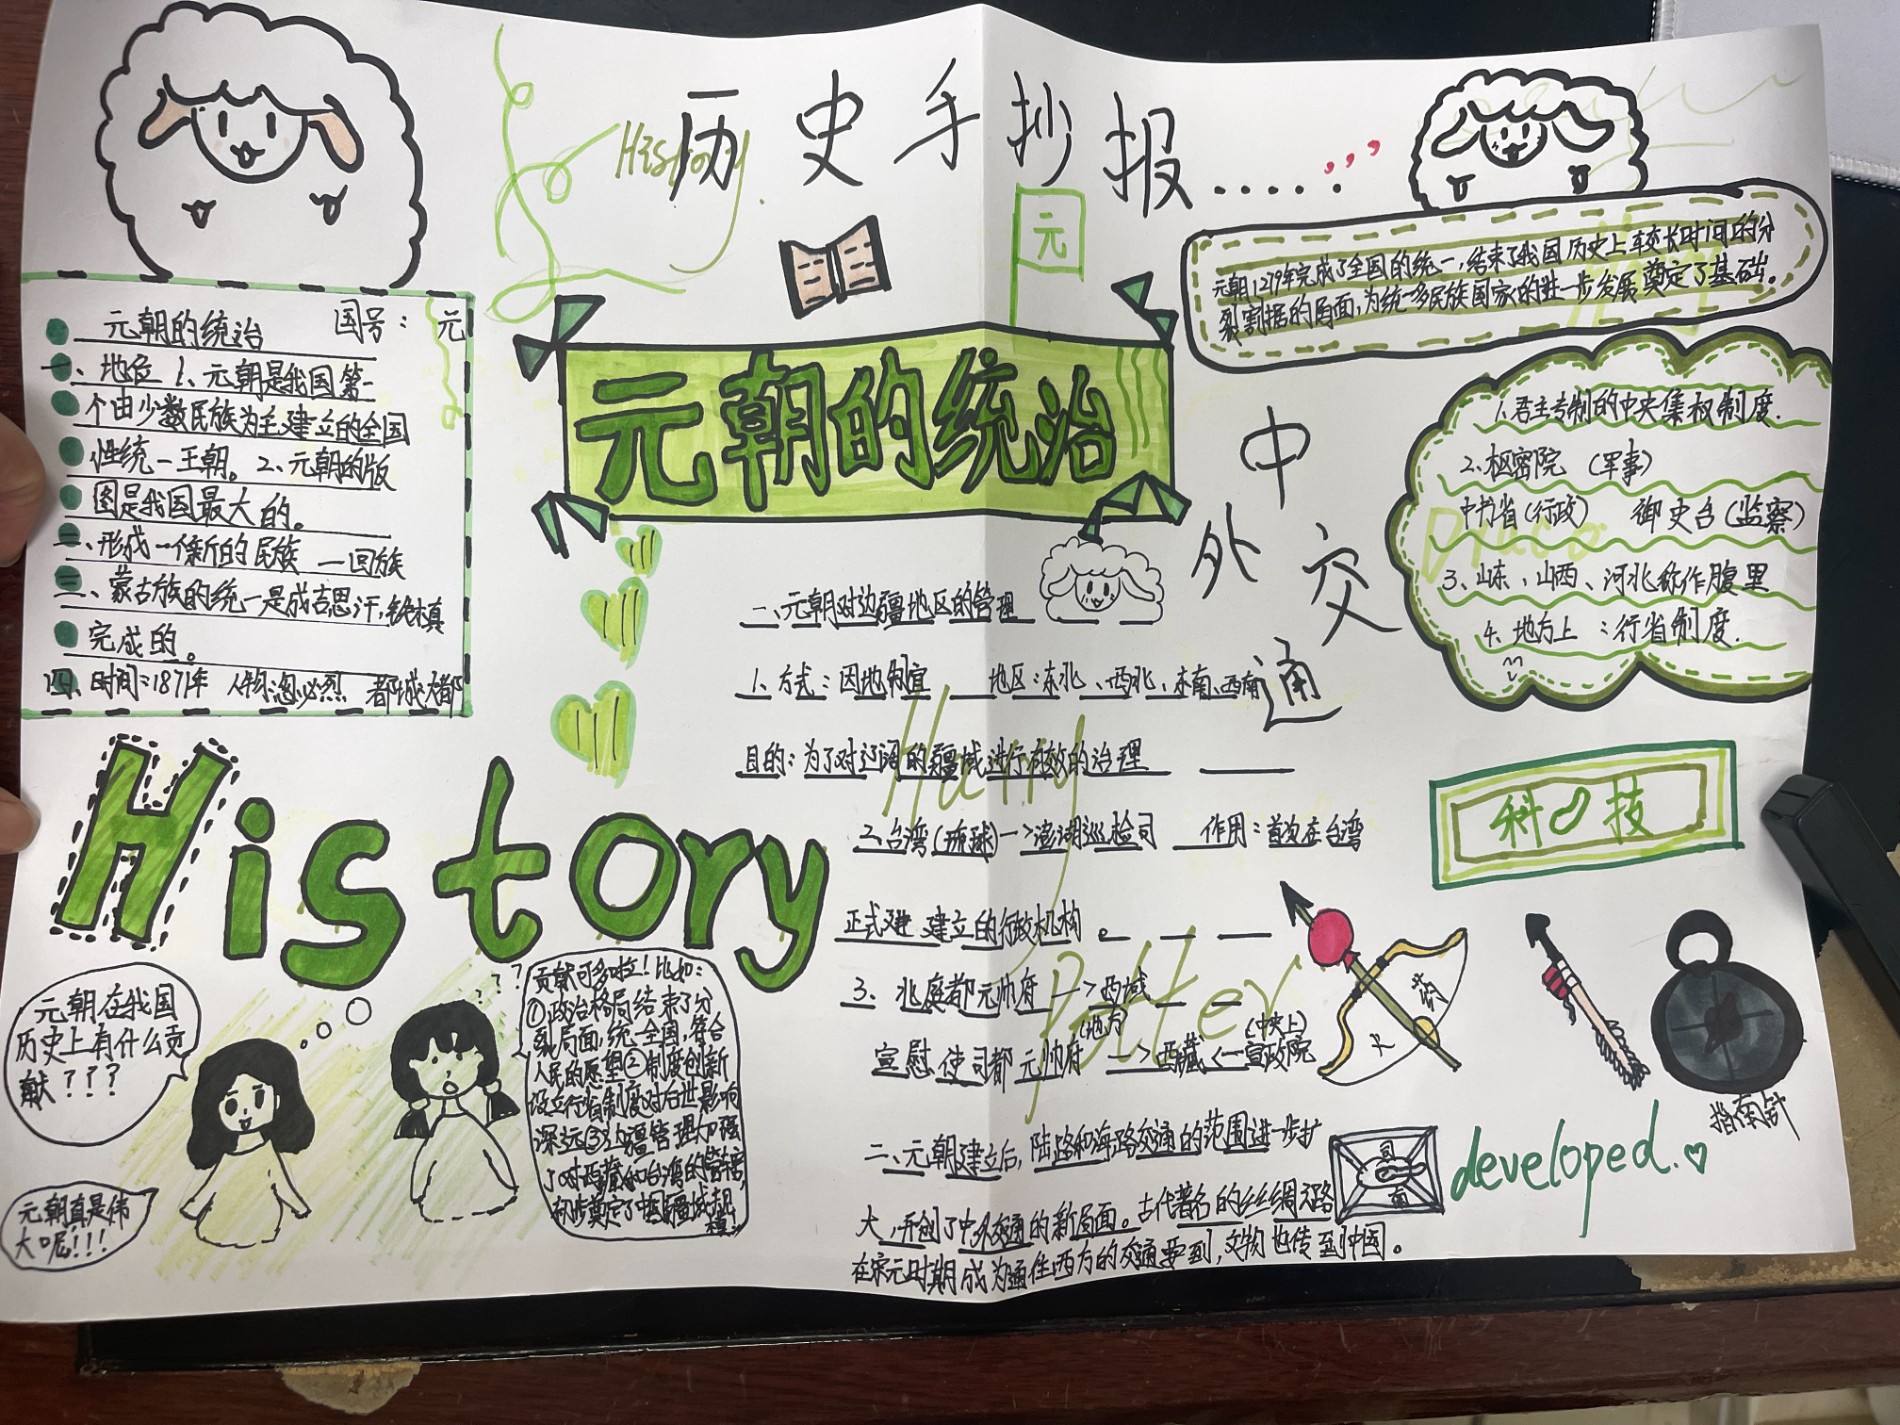 历史手抄报......
History
元
元朝的统治
元朝的统治 国号：元
一、地位 1、元朝是我国第一
个由少数民族为主建立的全国
性统一王朝。2、元朝的版
图是我国最大的。
二、形成一个新的民族 — 回族
三、蒙古族的统一是成吉思汗,铁木真
完成的。
四、时间：1871年 人物忽必烈 都城大都
元朝1279年完成了全国的统一,结束了我国历史上较长时间的分
裂割据的局面,为统一多民族国家的进一步发展奠定了基础。
1.君主专制的中央集权制度.
2.枢密院 (军事)
中书省(行政) 御史台(监察)
3、山东、山西、河北称作腹里
4、地方上：行省制度.
Draco
中外交通
一、元朝对边疆地区的管理
1、方式：因地制宜 地区：东北、西北、东南、西南
目的：为了对辽阔的疆域进行有效的治理
2.台湾(琉球)—>澎湖巡检司 作用：首次在台湾
正式建立的行政机构。
3、北庭都元帅府 —>西域
(地方) (中央上)
宣慰使司都元帅府 —>西藏<—宣政院
Harry
Potter
二、元朝建立后,陆路和海路交通的范围进一步扩
大,开创了中外交通的新局面。古代著名的丝绸之路
在宋元时期成为通往西方的交通要到,文物也传到中国。
科技
火药
指南针
司南
developed.
History
元朝在我国
历史上有什么贡
献？？？
元朝真是伟
大呢!!!
???
贡献可多啦!比如：
①政治格局结束了分
裂局面,统一全国,符合
人民的愿望②制度创新
设立行省制度对后世影响
深远③边疆管理加强
了对西藏和台湾的管辖,
初步奠定了中国疆域规
模